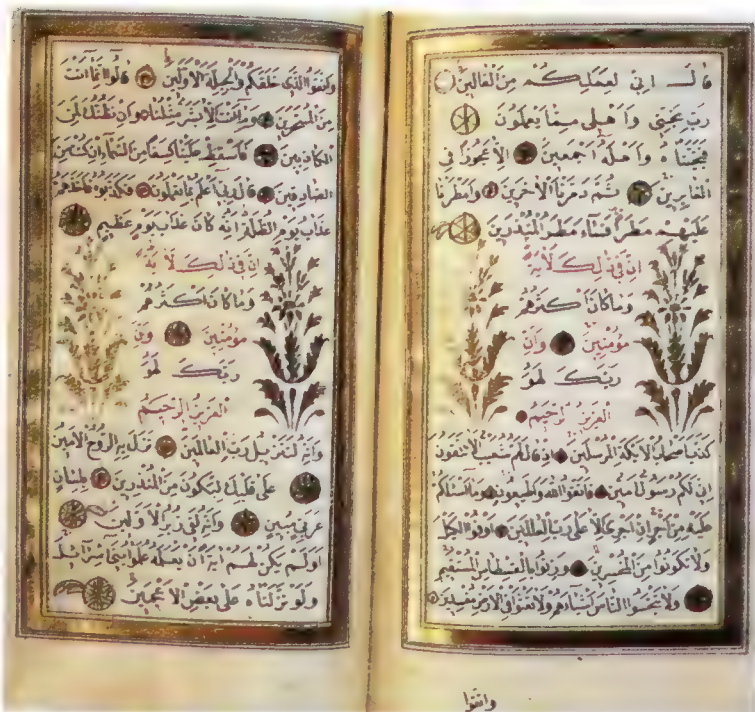 قَالَ اِنّي لِعَمَلِكُمْ مِنَ الْقَالينَ
رَبِّ نَجِّني وَاَهْلي مِمَّا يَعْمَلُونَ
فَنَجَّيْنَاهُ وَاَهْلَهُ اَجْمَعينَ اِلَّا عَجُوزًا فِي
الْغَابِرينَ ثُمَّ دَمَّرْنَا الْاٰخَرينَ وَاَمْطَرْنَا
عَلَيْهِمْ مَطَرًا فَسَاءَ مَطَرُ الْمُنْذَرينَ
اِنَّ في ذٰلِكَ لَاٰيَةً
وَمَا كَانَ اَكْثَرُهُمْ
مُؤْمِنينَ وَاِنَّ
رَبَّكَ لَهُوَ
الْعَزيزُ الرَّحيمُ
كَذَّبَ اَصْحَابُ الْاَيْكَةِ الْمُرْسَلينَ اِذْ قَالَ لَهُمْ شُعَيْبٌ اَلَا تَتَّقُونَ
اِنّي لَكُمْ رَسُولٌ اَمينٌ فَاتَّقُوا اللّٰهَ وَاَطيعُونِ وَمَا اَسْئَلُكُمْ
عَلَيْهِ مِنْ اَجْرٍ اِنْ اَجْرِيَ اِلَّا عَلٰى رَبِّ الْعَالَمينَ اَوْفُوا الْكَيْلَ
وَلَا تَكُونُوا مِنَ الْمُخْسِرينَ وَزِنُوا بِالْقِسْطَاسِ الْمُسْتَقيمِ
وَلَا تَبْخَسُوا النَّاسَ اَشْيَاءَهُمْ وَلَا تَعْثَوْا فِي الْاَرْضِ مُفْسِدينَ
واتقوا
وَاتَّقُوا الَّذي خَلَقَكُمْ وَالْجِبِلَّةَ الْاَوَّلينَ قَالُوا اِنَّمَا اَنْتَ
مِنَ الْمُسَحَّرينَ وَمَا اَنْتَ اِلَّا بَشَرٌ مِثْلُنَا وَاِنْ نَظُنُّكَ لَمِنَ
الْكَاذِبينَ فَاَسْقِطْ عَلَيْنَا كِسَفًا مِنَ السَّمَاءِ اِنْ كُنْتَ مِنَ
الصَّادِقينَ قَالَ رَبّي اَعْلَمُ بِمَا تَعْمَلُونَ فَكَذَّبُوهُ فَاَخَذَهُمْ
عَذَابُ يَوْمِ الظُّلَّةِ اِنَّهُ كَانَ عَذَابَ يَوْمٍ عَظيمٍ
اِنَّ في ذٰلِكَ لَاٰيَةً
وَمَا كَانَ اَكْثَرُهُمْ
مُؤْمِنينَ وَاِنَّ
رَبَّكَ لَهُوَ
الْعَزيزُ الرَّحيمُ
وَاِنَّهُ لَتَنْزيلُ رَبِّ الْعَالَمينَ نَزَلَ بِهِ الرُّوحُ الْاَمينُ
عَلٰى قَلْبِكَ لِتَكُونَ مِنَ الْمُنْذِرينَ بِلِسَانٍ
عَرَبِيٍّ مُبينٍ وَاِنَّهُ لَفي زُبُرِ الْاَوَّلينَ
اَوَلَمْ يَكُنْ لَهُمْ اٰيَةً اَنْ يَعْلَمَهُ عُلَمٰؤُا بَني اِسْرَائلَ
وَلَوْ نَزَّلْنَاهُ عَلٰى بَعْضِ الْاَعْجَمينَ